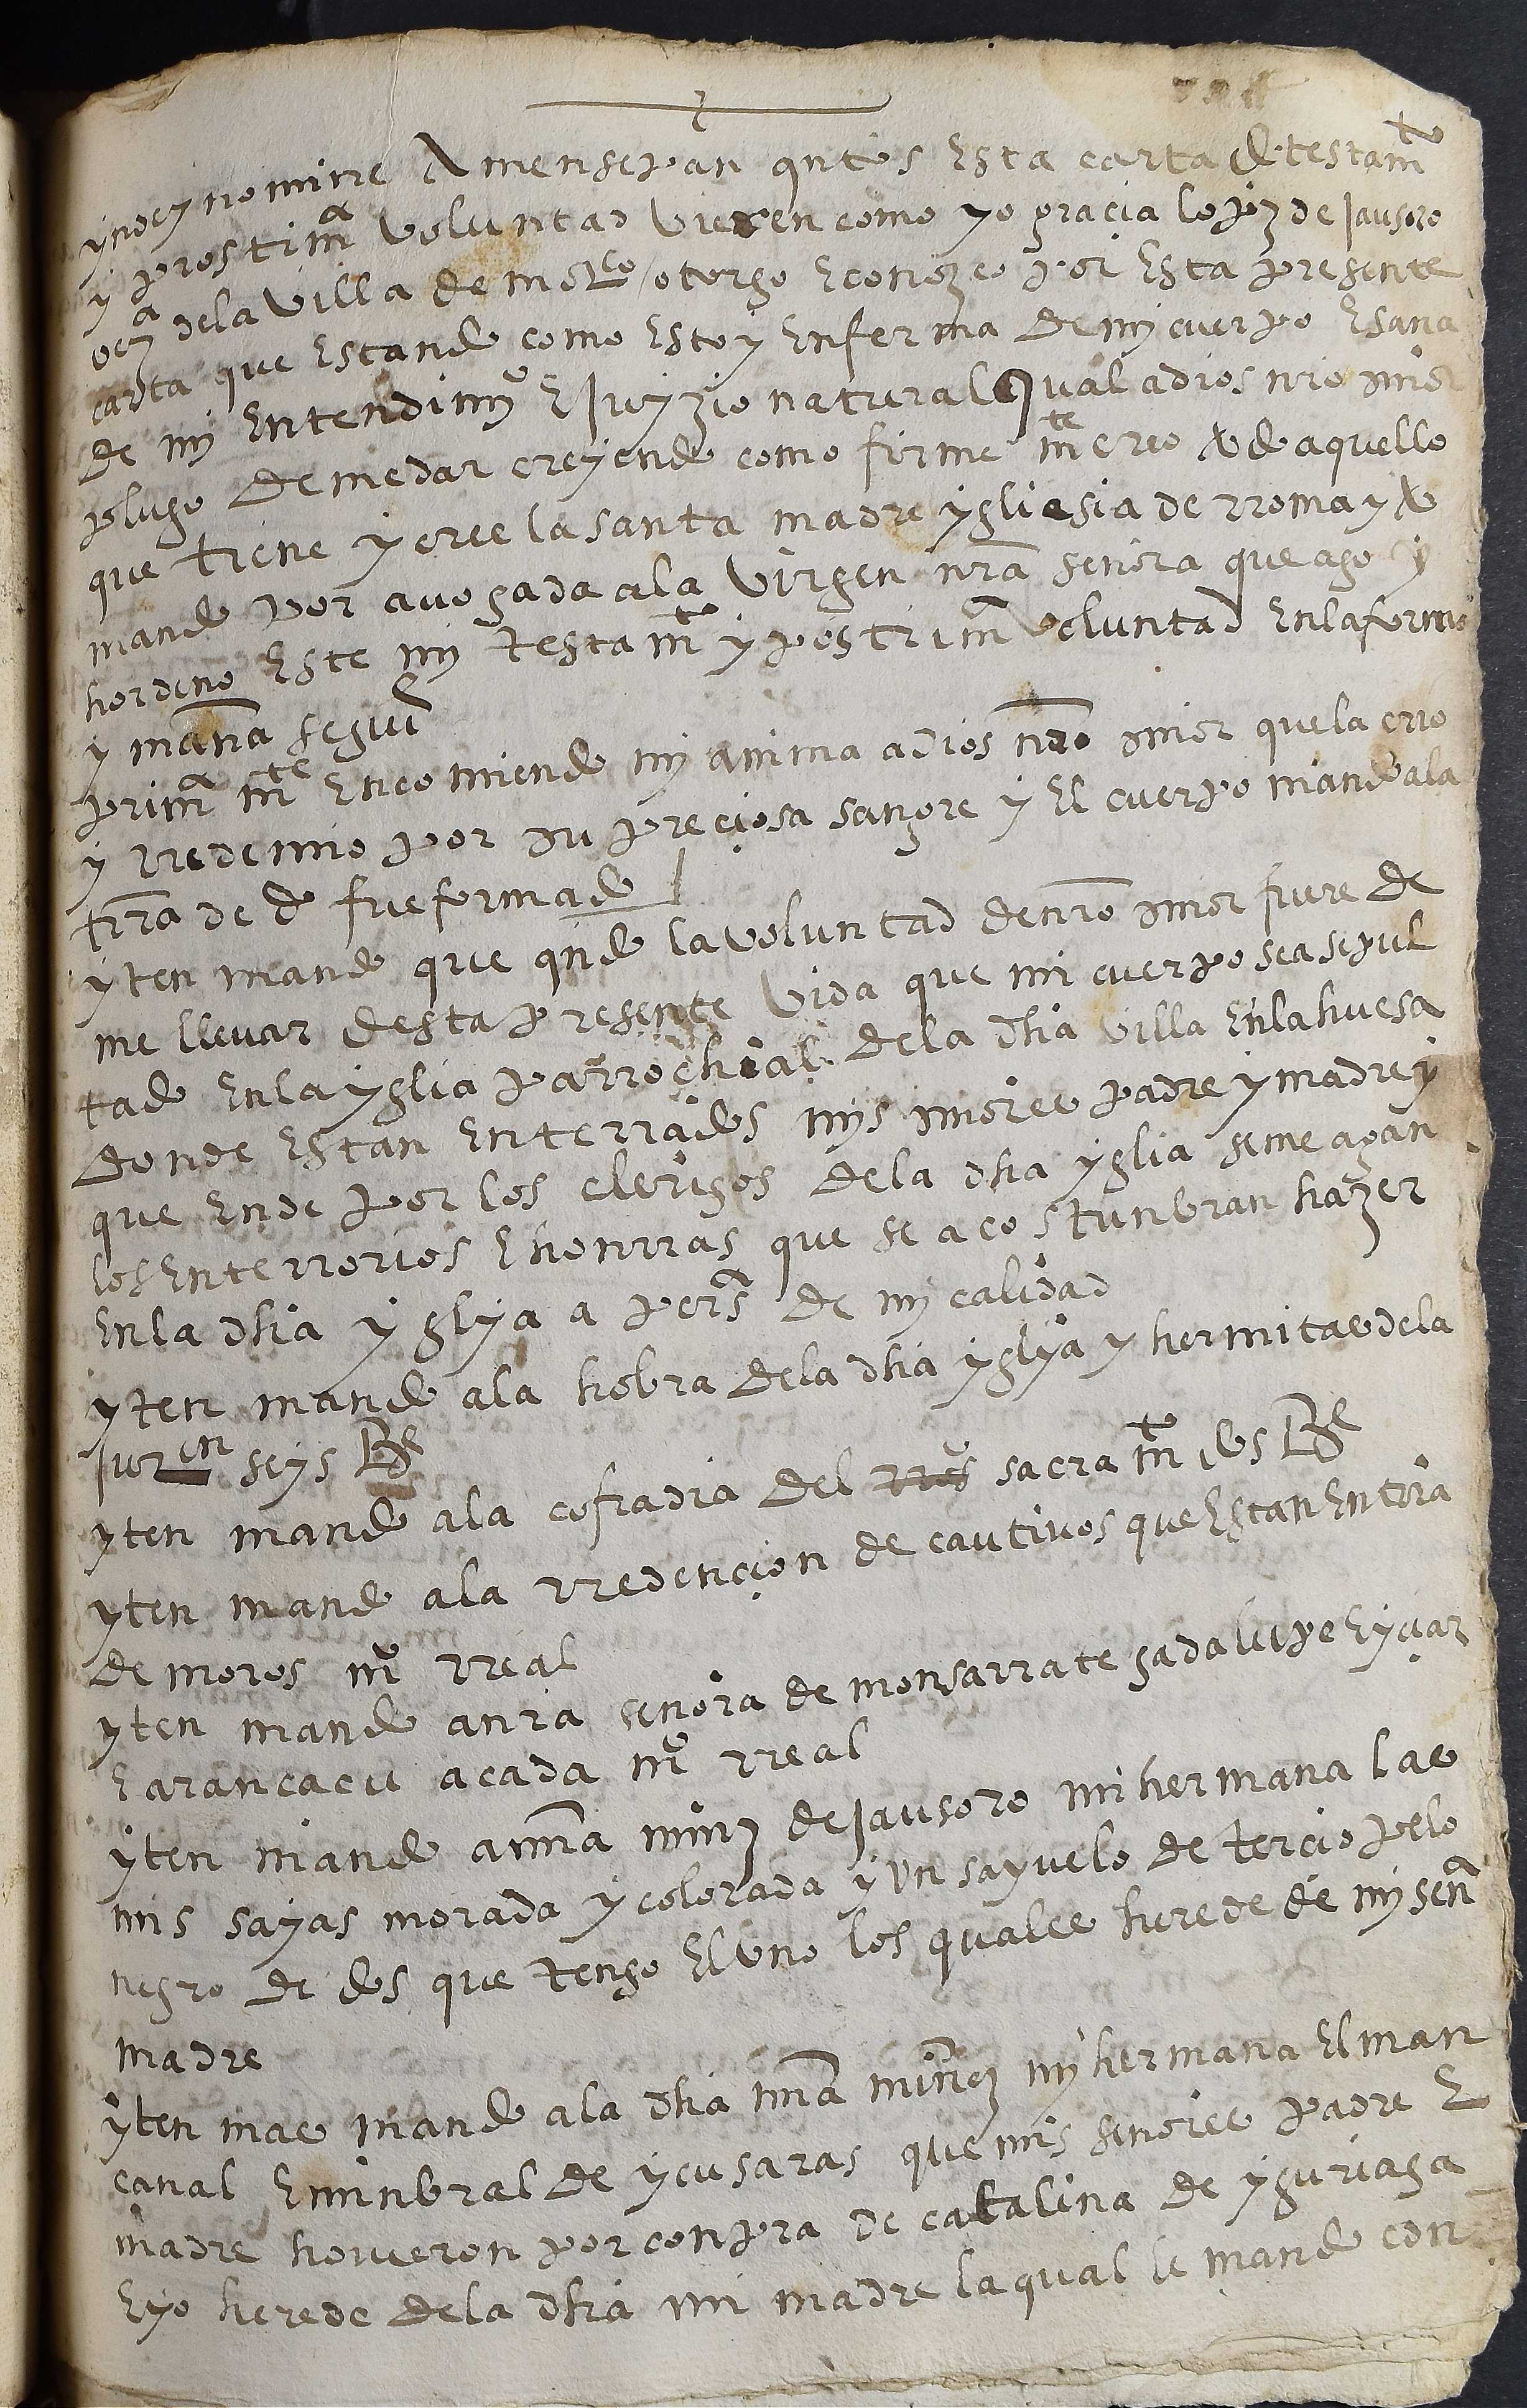 yn dey nomine Amen sepan qntos esta carta de testamto
y prostima voluntad vieren como yo gracia lopz de Jausoro
veza dela villa de motco / otorgo E conozco por Esta presente
carta que Estando como Estoy Enferma de mi cuerpo E sana
de mi Entendimyo E Juyzio natural qual a dios nro snor
plugo de me dar creyendo como firme mte creo todo aquello
que tiene y cree la santa madre ygliesia de rroma y to
mando por auogada ala Virgen nra senora que ago y
hordeno Este mi testamto y postrima voluntad En la forma
y mana seguite
primamte Encomiendo mi anima a dios nro snor que la crio
y rredemio por su preciosa sangre y El cuerpo mando ala
trra de do fue formado
yten mando que qndo la voluntad de nro snor fuere de
me lleuar desta presente vida que mi cuerpo sea sepul
tado En la yglia parrochial dela dha villa En la huesa
donde Estan Enterrados mys snores padre y madre y
que Ende por los clerigos dela dha yglia se me agan
los Enterrorios E honrras que se acostunbran hazer
En la dha yglya a persa de mi calidad
yten mando ala hobra dela dha yglya y hermitas de la
Juron seys Rs
yten mando ala cofradia del sacramto dos Rs
yten mando ala rredencion de cautivos que Estan En trra
de moros mo rreal
yten mando a nra senora de monsarrate gadalupe E yciar
E arancacu a cada mo rreal
yten mando a mna minz de Jausoro mi hermana las
mis sayas morada y colorada y vn sayuelo de terciopelo
negro de dos que tengo El vno los quales herede de mi sena
madre
yten mas mando ala dha mna minez mi hermana El man
canal E minbral de ycusaras que mis senores padre E
madre hovieron por conpra de catalina de yguriaga
E yo herede dela dha mi madre la qual le mando con